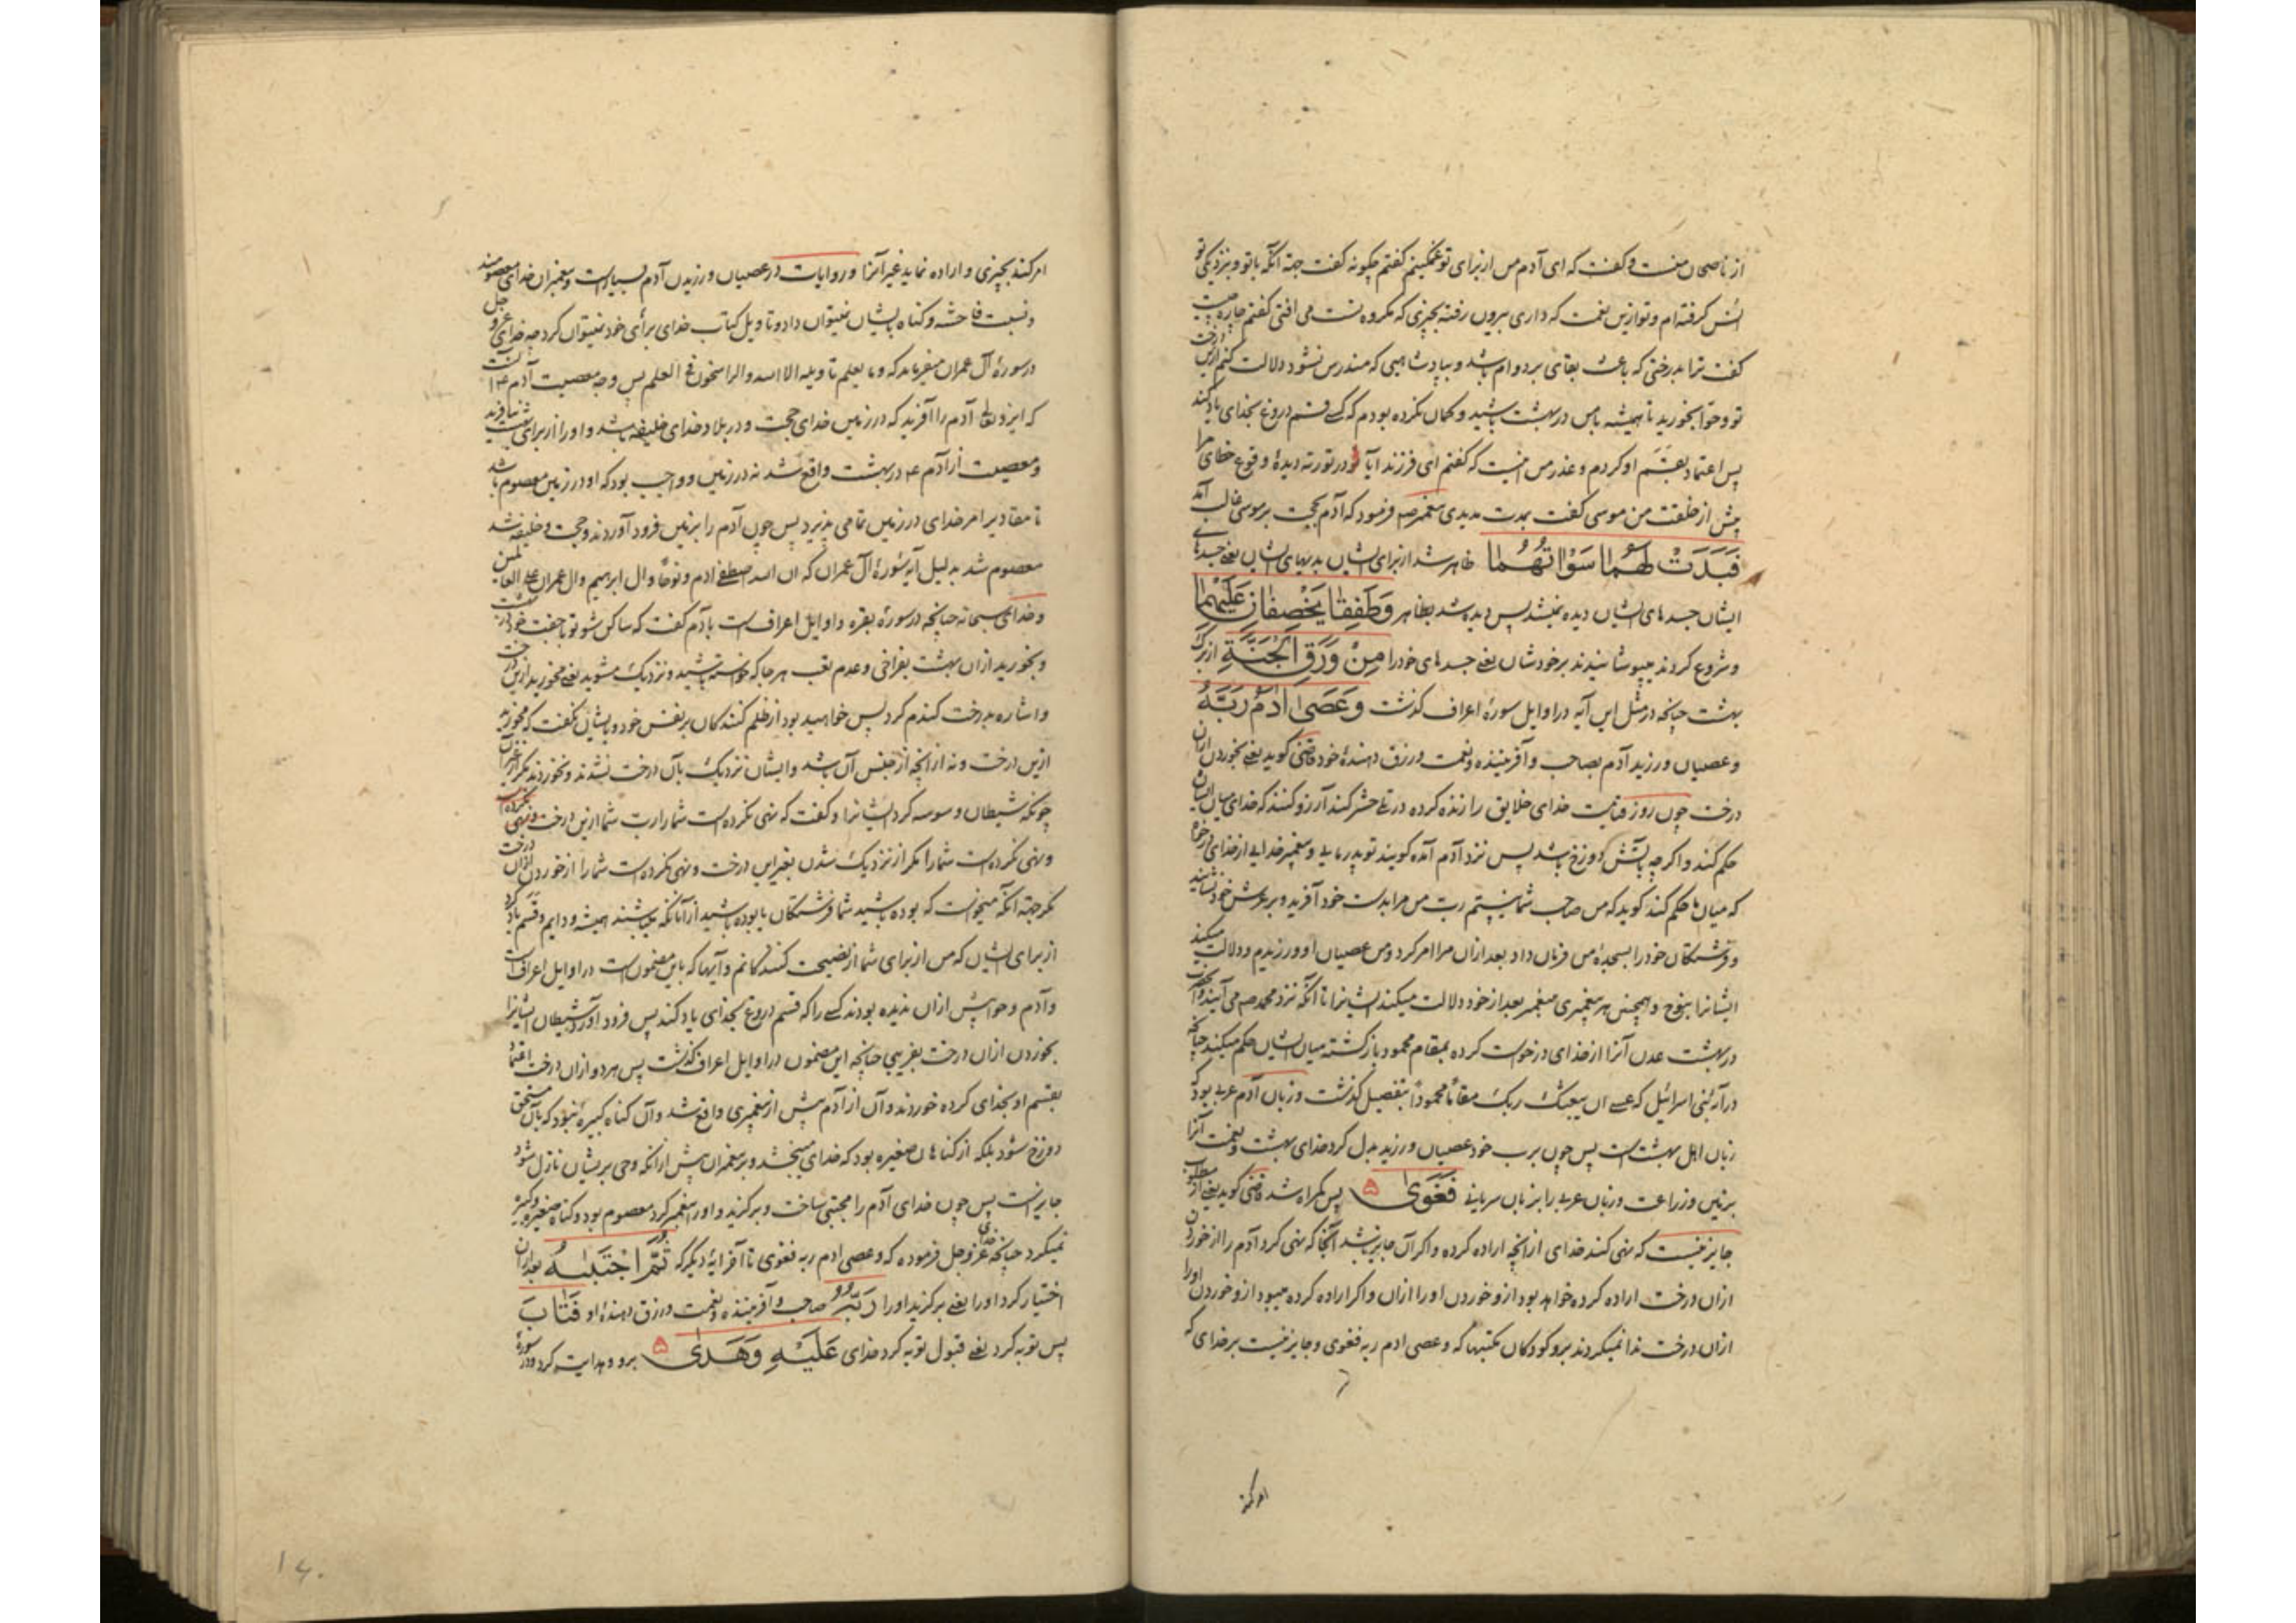 از ناصحان منست و گفت که ای آدم من از برای تو غمگینم گفتم چگونه گفت جهة آنکه با تو و بنزدیکی تو
انس گرفته‌ام و تو ازین نعمت که داری بیرون رفته بچیزی که مکروه تست می افتی گفتم چاره چیست
گفت ترا بدرختی که باعث بقای بر دوام باشد و بپادشاهیی که مندرس نشود دلالت کنم ازین درخت
تو و حوّا بخورید تا همیشه با من در بهشت باشید و گمان نکرده بودم که کسے قسم دروغ بخدای یاد کند
پس اعتماد بقسَم او کردم و عذر من اینست که گفتم ای فرزند آیا تو در توریة دیدهٔ وقوع خطای مرا
پیش از خلقت من موسی گفت بمدت مدیدی پیغمبر صه فرمود که آدم بحجت بر موسی غالب آمد
فَبَدَتْ لَهُمَا سَوْاٰتُهُمَا ظاهر شد از برای ایشان بدیهای ایشان یعنے جسدهاے
ایشان جسدهای ایشان دیده نمیشد پس دیده شد بظاهر وَطَفِقَا یَخْصِفَانِ عَلَیْهِمَا
و شروع کردند میپوشانیدند بر خودشان یعنے جسدهای خود را مِنْ وَرَقِ الْجَنَّةِ از برک
بهشت چنانچه در مثل این آیه در اوایل سورهٔ اعراف گذشت وَعَصَیٰ اٰدَمُ رَبَّهُ
و عصیان ورزید آدم بصاحب و آفریننده و نعمت و رزق دهندهٔ خود قمی گوید یعنے بخوردن ازان
درخت چون روز قیامت خدای خلایق را زنده کرده در حشر کند آرزو کنند که خدای میان ایشان
حکم کند و اگرچه بآتش دوزخ باشد پس نزد آدم آمده گویند تو پدر مایی و پیغمبر خدایی از خدای درخواه
که میان ما حکم کند گوید که من صاحب شما نیستم ربّ من مرا بدست خود آفرید و بر عرش خود نشانید
و فرشتگان خود را بسجدهٔ من فرمان داد بعد ازان مرا امر کرد و من عصیان او ورزیدم و دلالت میکند
ایشانرا بنوح و همچنین هر پیغمبری به پیغمبر بعد از خود دلالت میکند ایشانرا تا آنکه نزد محمد صه می آیند
در بهشت عدن آنرا از خدای درخواست کرده بمقام محمود بازگشته میان ایشان حکم میکند چنانچه
در آیهٔ بنی اسرائیل که عسے ان یبعثک ربک مقاماً محموداً بتفصیل گذشت و زبان آدم عربے بود که
زبان اهل بهشت است پس چون بربّ خود عصیان ورزید بدل کرد خدای بهشت و نعمت آنرا
بزمین و زراعت و زبان عربے را بزبان سریانے فَغَوٰی پس گمراه شد قمی گوید یعنے از مطلوب
جایز نیست که نهی کند خدای از آنچه اراده کرده و اگر آن جایز باشد آنجا که نهی کرد آدم را از خوردن
ازان درخت اراده کرده خواهد بود از و خوردن او را ازان و اگر اراده کرده میبود از و خوردن او را
ازان درخت ندا نمیکردند برو کودکان مکتبها که و عصی ادم ربه فغوی و جایز نیست بر خدای که
امر کند
امر کند بچیزی و اراده نماید غیر آنرا و روایات در عصیان ورزیدن آدم بسیار است و پیغمبران خدای معصومند
و نسبت فاحشه و گناه بایشان نمیتوان داد و تاویل کتاب خدای برأی خود نمیتوان کرد چه خدای عز و جل
در سورهٔ آل عمران میفرماید که و ما یعلم تاویله الا الله و الراسخون فی العلم پس وجه معصیت آدم ع آنست
که ایزد تعالی آدم را آفرید که در زمین خدای حجت و در بلاد خدای خلیفه باشد و او را از برای بهشت نیافرید
و معصیت از آدم ع در بهشت واقع شد نه در زمین و واجب بود که او در زمین معصوم باشد
تا مقادیر امر خدای در زمین تمامی پذیرد پس چون آدم را بزمین فرود آوردند و حجت و خلیفه شد
معصوم شد بدلیل آیهٔ سورهٔ آل عمران که ان الله اصطفی ادم و نوحاً و ال ابرهیم و ال عمران علی العالمین
و خدای سبحانه چنانچه در سورهٔ بقره و اوایل اعراف است بآدم گفت که ساکن شو تو با جفت خود در بهشت
و بخورید ازان بهشت بفراخی و عدم تعب هر جا که خواسته باشید و نزدیک مشوید یعنے مخورید ازین درخت
و اشاره بدرخت گندم کرد پس خواهید بود از ظلم کنندگان بر نفس خود و بایشان نگفت که مخورید
ازین درخت و نه از آنچه از جنس آن باشد و ایشان نزدیک بآن درخت نشدند و نخوردند مگر از غیر آن
چونکه شیطان وسوسه کرد ایشانرا و گفت که نهی نکرده است شما را ربّ شما ازین درخت
و نهی نکرده است شما را مگر از نزدیک شدن بغیر این درخت و نهی نکرده است شما را از خوردن ازان درخت
مگر جهة آنکه میخواست که بوده باشید شما فرشتگان یا بوده باشید از آنانکه میباشند همیشه و دایم و قَسَم یاد کرد
از برای ایشان که من از برای شما از نصیحت کنندگانم و آیها که باین مضمون است در اوایل اعراف است
و آدم و حوا پیش ازان ندیده بودند کسے را که قسم دروغ بخدای یاد کند پس فرود آورد شیطان ایشانرا
بخوردن ازان درخت بفریبی چنانچه این مضمون در اوایل اعراف گذشت پس هر دو ازان درخت اعتماد
بقسم او بخدای کرده خوردند و آن از آدم پیش از پیغمبری واقع شد و آن گناه کبیره نبود که بآن مستحق
دوزخ شود بلکه از گناهان صغیره بود که خدای میبخشد و بر پیغمبران پیش از آنکه وحی بریشان نازل شود
جایز است پس چون خدای آدم را مجتبی ساخت و برگزید و او را پیغمبر کرد معصوم بود و گناه صغیره و کبیره
نمیکرد چنانچه خدای عزوجل فرموده که و عصی ادم ربه فغوی تا آخر آیهٔ دیگر که ثُمَّ اجْتَبٰیهُ بعد ازان
اختیار کرد او را یعنے برگزید او را رَبُّهُ صاحب و آفریننده و نعمت و رزق دهندهٔ او فَتَابَ
پس توبه کرد یعنے قبول توبه کرد خدای عَلَیْهِ وَهَدٰی برو و هدایت کرد و در سورهٔ